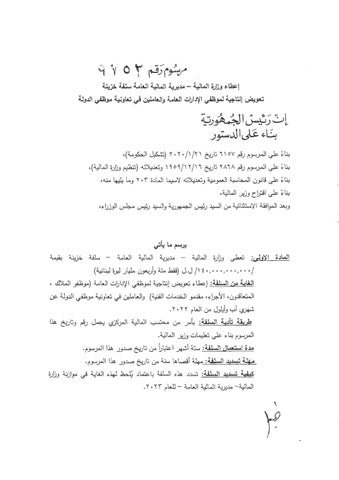 مرسوم رقم ٩٧٥٢
إعطاء وزارة المالية – مديرية المالية العامة سلفة خزينة
تعويض إنتاجية لموظفي الإدارات العامة والعاملين في تعاونية موظفي الدولة
إن رئيس الجمهورية
بناء على الدستور
بناءً على المرسوم رقم ٦١٥٧ تاريخ ٢٠٢٠/١/٢١ (تشكيل الحكومة)،
بناءً على المرسوم رقم ٢٨٦٨ تاريخ ١٩٥٩/١٢/١٦ وتعديلاته (تنظيم وزارة المالية)،
بناءً على قانون المحاسبة العمومية وتعديلاته لاسيما المادة ٢٠٣ وما يليها منه،
بناءً على اقتراح وزير المالية،
وبعد الموافقة الاستثنائية من السيد رئيس الجمهورية والسيد رئيس مجلس الوزراء،
يرسم ما يأتي
المادة الأولى: تعطى وزارة المالية – مديرية المالية العامة – سلفة خزينة بقيمة
/١٤٠.٠٠٠.٠٠٠.٠٠٠/ ل.ل (فقط مئة وأربعون مليار ليرة لبنانية)
الغاية من السلفة: إعطاء تعويض إنتاجية لموظفي الإدارات العامة (موظفو الملاك ،
المتعاقدون، الأجراء، مقدمو الخدمات الفنية) والعاملين في تعاونية موظفي الدولة عن
شهري آب وأيلول من العام ٢٠٢٢.
طريقة تأدية السلفة: بأمر من محتسب المالية المركزي يحمل رقم وتاريخ هذا
المرسوم بناء على تعليمات وزير المالية.
مدة استعمال السلفة: ستة أشهر اعتباراً من تاريخ صدور هذا المرسوم.
مهلة تسديد السلفة: مهلة أقصاها سنة من تاريخ صدور هذا المرسوم.
كيفية تسديد السلفة: تسدد هذه السلفة باعتماد يُلحظ لهذه الغاية في موازنة وزارة
المالية– مديرية المالية العامة – للعام ٢٠٢٣.